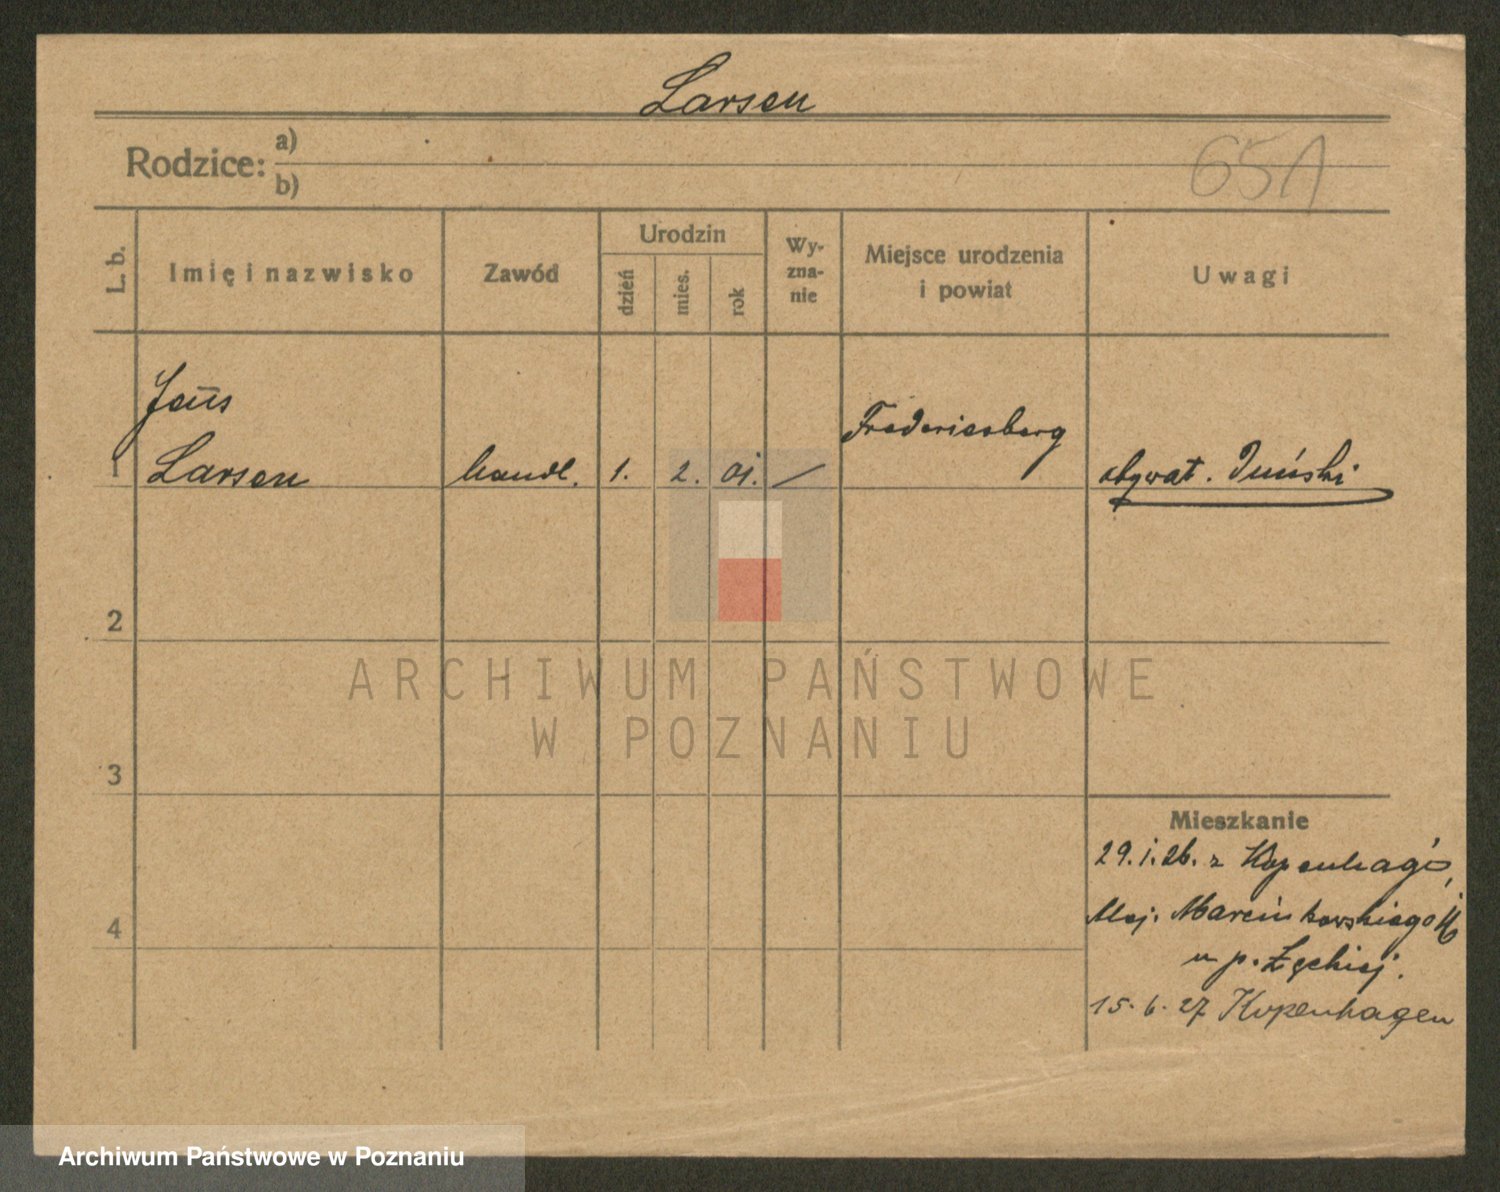 Larsen
Rodzice:
a)
b)
651
L. b.
Imię i nazwisko
Zawód
Urodzin
dzień
mies.
rok
Wy-
zna-
nie
Miejsce urodzenia
i powiat
Uwagi
Larsen
1
handl.
1.
2.
01.
Fredericsberg
obywat. Duński
2
3
4
Mieszkanie
29.1.26. z Kopenhagi,
Marcinkowskiego
u p. Łąckiej.
15.6.27 Kopenhagen
ARCHIWUM PAŃSTWOWE
W POZNANIU
Archiwum Państwowe w Poznaniu